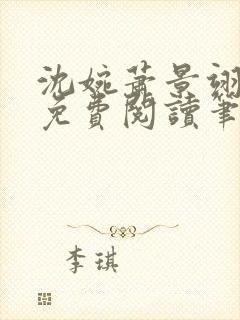 沈婉蕭景翊
免費閱讀筆
李琪